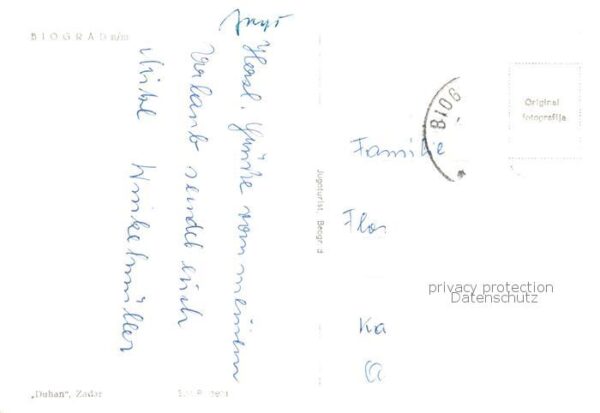 BIOGRAD n/m
Herzl. Grüße vom meinem
Urlaub sendet euch
Winkelmüller
Familie
Flo
Ka
BIOG
Original
fotografija
Jugoturist, Beograd
privacy protection
Datenschutz
„Duhan", Zadar